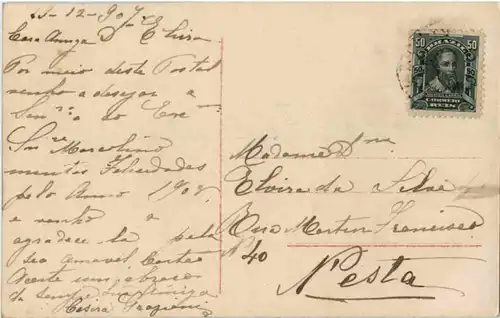 23-12-907
Cara Amiga D. Elvira
Por meio deste Postal
venho a desejar a
Senra e ao Exe
Snr Marcolino
mentos Felicidades
pelo Anno 1908
e venho a
agradece la pela
sea amavel Cartão
Aceite um abraço
da sempre Amiga
50 BRAZIL 50
CORREIO
REIS
Madame Dna
Elvira da Silva
Rua Martin Francisco
Nº 40
Nesta